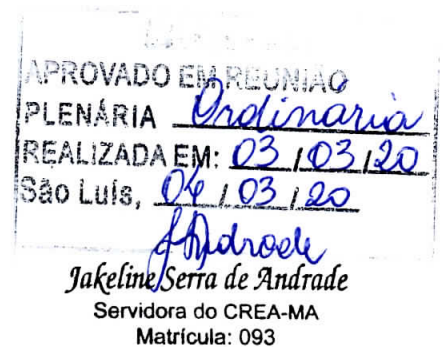 APROVADO EM REUNIÃO
PLENÁRIA Ordinaria
REALIZADA EM: 03 / 03 / 20
São Luís, 04 / 03 / 20
JAndrade
Jakeline Serra de Andrade
Servidora do CREA-MA
Matrícula: 093